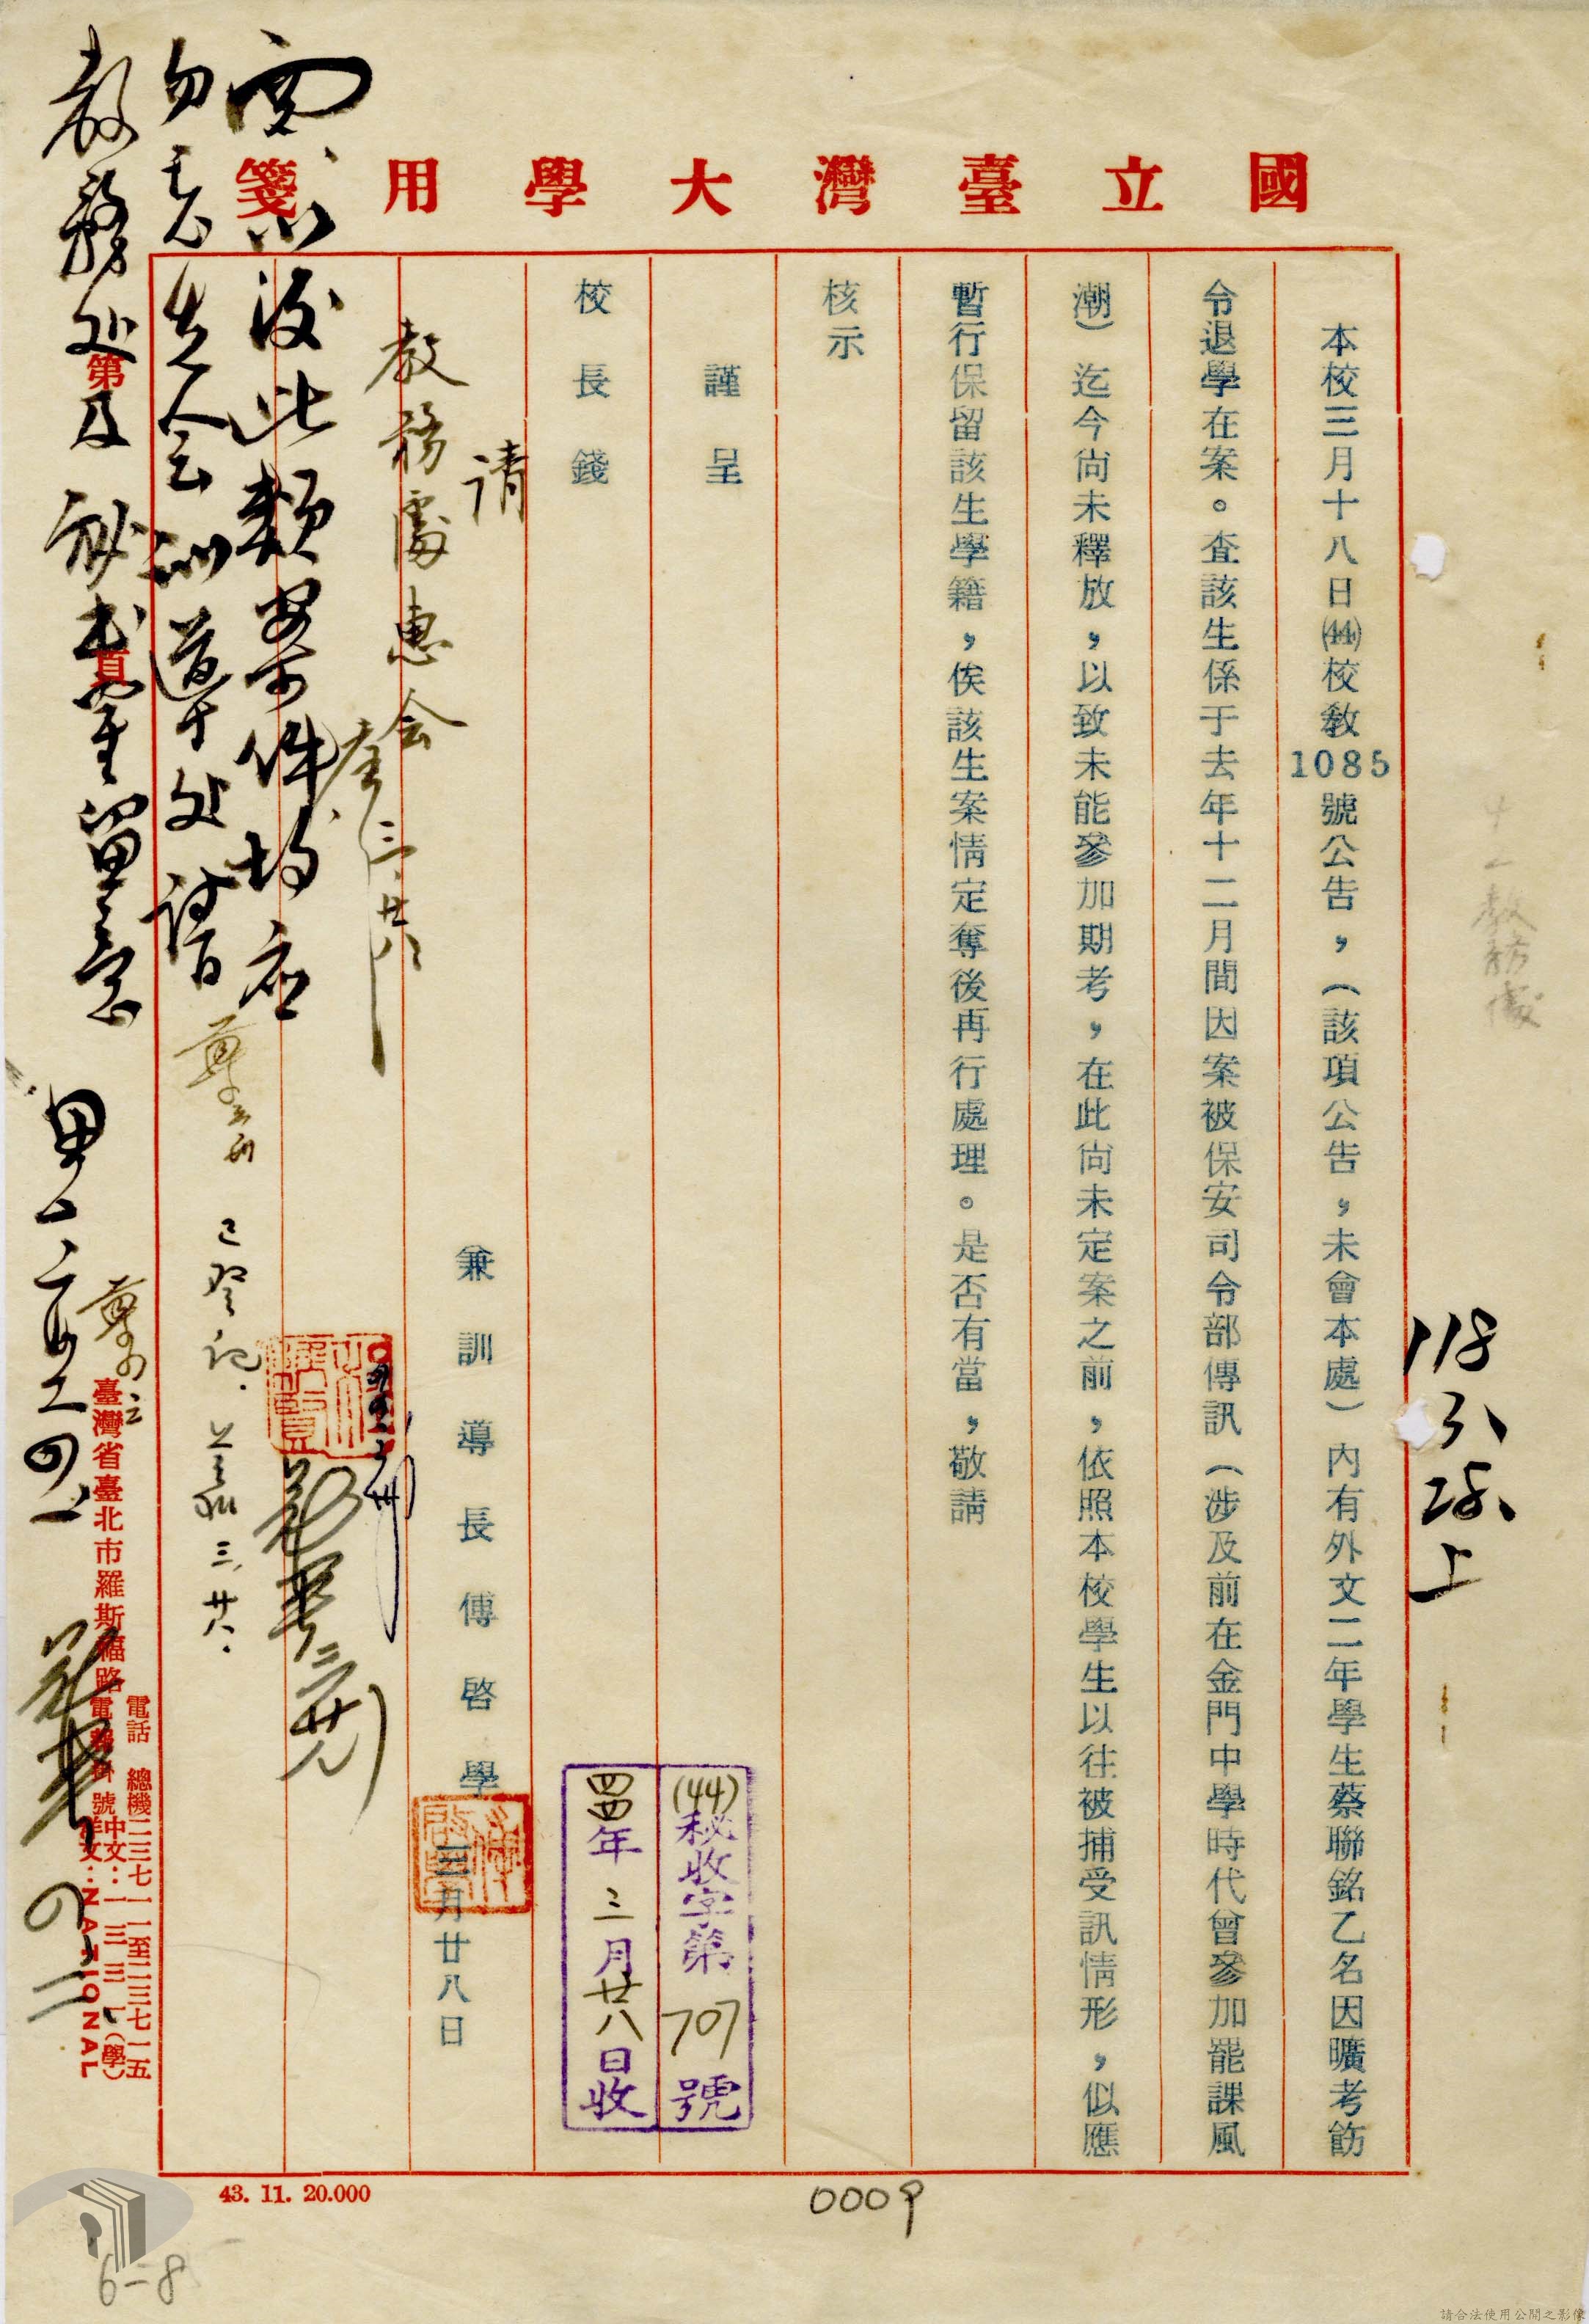 國立臺灣大學用箋
本校三月十八日(44)校教1085號公告，（該項公告，未會本處）內有外文二年學生蔡聯銘乙名因曠考飭
令退學在案。查該生係于去年十二月間因案被保安司令部傳訊（涉及前在金門中學時代曾參加罷課風
潮）迄今尚未釋放，以致未能參加期考，在此尚未定案之前，依照本校學生以往被捕受訊情形，似應
暫行保留該生學籍，俟該生案情定奪後再行處理。是否有當，敬請
核示
謹呈
校長錢
兼訓導長傅啓學
三月廿八日
(44)秘收字第707號
四四年三月廿八日收
請
教務處惠会
三、廿八
以後此類案件均應
先会訓導处請
教務处及秘書室留意
已登記.
三,廿八.
118
上
教務處
第 頁
臺灣省臺北市羅斯福路
電話 總機二三七一一至二三七一五
電報掛號中文：一三三一（學）
英文：NATIONAL
43. 11. 20.000
0009
6-8
請合法使用公開之影像